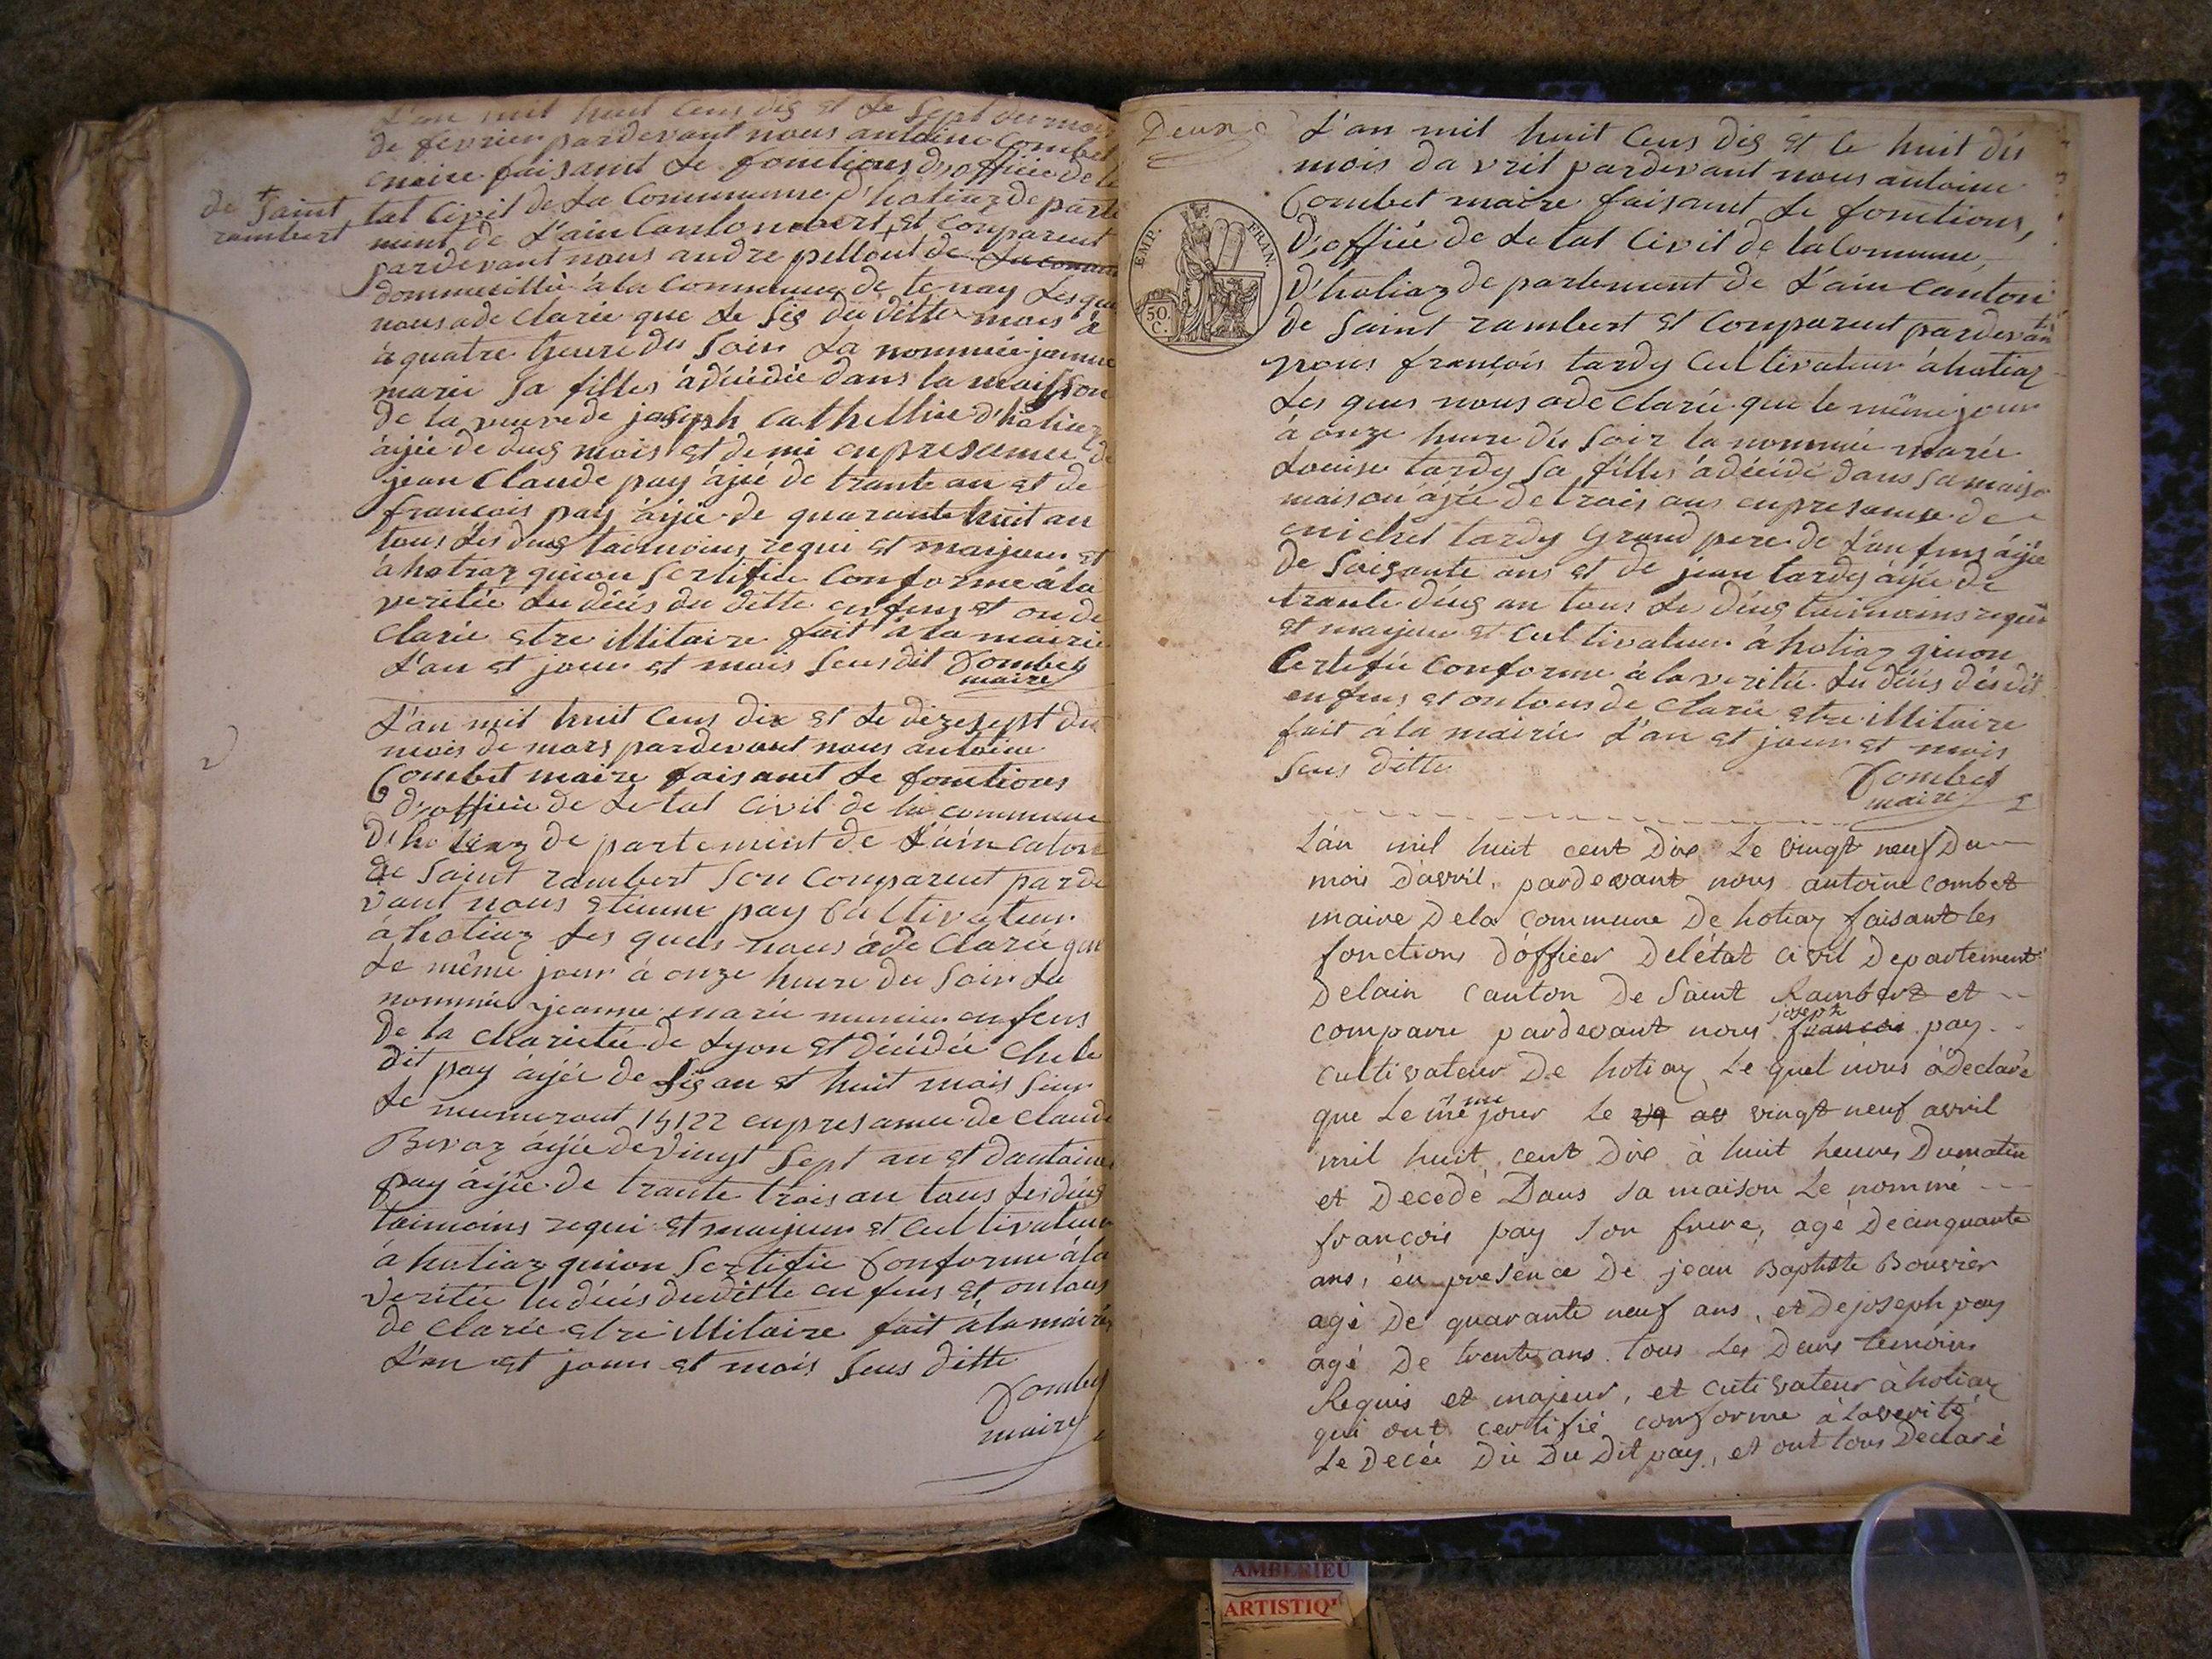 L'an mil huit Cens dis et Le Sept du mois
de fevrier pardevant nous antoine Combet
maire faisant Le fonctions d'officie de Le
tat Civil de La Commune d'hotiaz de parte
ment de L'ain Canton + et Conparent
de + saint
rambert
pardevant nous andre pellout de
dommeeillié à la Commune de tenay Les que
nous a de Clarie que Le sis du ditte mois à
a quatre heure du soir La nommiée janne
marie sa filles a décidée dans la maisson
de la veuve de joseph Cathelline d'hotiaz
ajée de deus mois et de mi en presamce de
jean Claude pay àjée de trante an et de
francois pay àjée de quarante huit an
tous Les deus taimoins requi et maijeur et
a hotiaz qui on Sertifiee Conforme à la
veritée du décis du ditte enfens et on de
Clarie etre illitaire fait à la mairie
L'an et jour et mois Susdit Combet
maire
L'an mil huit Cens dix et Le dizesept du
mois de mars pardevant nous antoine
Combet maire faisant Le fonctions
d'officie de Le tat Civil de la Commune
D'hotiaz de partement de L'ain Caton
de Saint rambert Son Conparent parde
vant nous etienne pay Cultivateur
à hotiaz Les quels nous àde Clarie que
Le même jour à onze heure du soir La
nommiée jeanne marie enfens
de la Charietée de Lyon et décidée Che le
dit pay àjée de sis an et huit mais Sous
Le numeraut 15122 en presamce de Claude
Bevoz àjée de vingt Sept an et dantoine
pay àjée de trante trois an tous Les deus
taimoins requi et maijeur et Cultivateur
à hotiaz qui on Sertifie Conforme à la
veritée du décis du ditte enfens et on tous
de Clarie etre illitaire fait à la mairie
L'an et jour et mois sus ditte
Combet
maire
Deux
EMP. FRAN.
50.
C.
L'an mil huit Cens dis et le huit du
mois davril pardevant nous antoine
Combet maire faisant Le fonctions,
D'officie de Le tat Civil de la Commune,
D'hotiaz de partement de L'ain Canton
de Saint rambert et Conparent pardevant
nous françois tardy Cultivateur à hotiaz
Les ques nous ade Clarie que le même jour
à onze heure du soir la nommiée marie
Louise tardy sa filles à décidé dans sa maiso
maison àjée de trois ans en presamce de
michel tardy Grand pere de L'enfens àjée
De soisante ans et de jean tardy àjée de
trante deus an tous Le deus taimoins requi
et maijeur et Cultivateur à hotiaz qui on
Certifie Conforme à la veritée du décis du dit
enfens et on tous de Clarie etre illitaire
fait à la mairie L'an et jour et mois
sus ditte
Combet
maire
L'an mil huit cent Dix Le vingt neuf Du
mois D'avril, pardevant nous antoine combet
maire Dela commune De hotiaz faisant les
fonctions d'officier Del'état civil Departement
Delain canton De Saint Rambert et
joseph
comparu pardevant nous francois pay
cultivateur De hotiaz Le quel nous à Declaré
que Le même jour Le vingt neuf avril
mil huit cent Dix à huit heures Dumatin
et Decedé Dans sa maison Le nommé
francois pay son frere, agé Decinquante
ans, en presence De jean Baptiste Bouvier
agé De quarante neuf ans, et De joseph pay
agé De trente ans tous Les Deux temoins
Requis et majeur, et cultivateur à hotiaz
qui ont certifié conforme à la verité
Le Decés Du Du Dit pay, et ont tous Declaré
AMBERIEU
ARTISTIQ